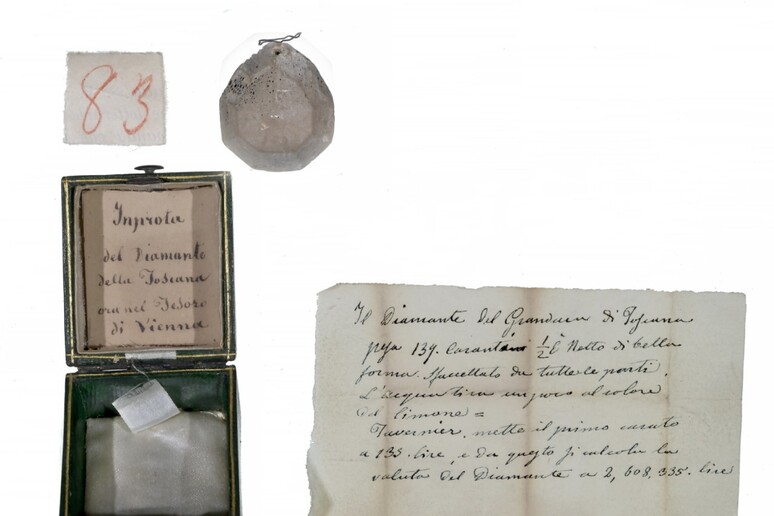 83
Inprota
del Diamante
della Toscana
ora nel Tesoro
di Vienna
Il Diamante del Granduca di Toscana
pesa 139. Carant 1/2 È Netto di bella
forma. Facettato da tutte le parti.
L'acqua tira un poco al colore
del limone =
Tavernier, mette il primo carato
a 135. lire, e da questo si calcola la
valuta del Diamante a 2,608,335. lire